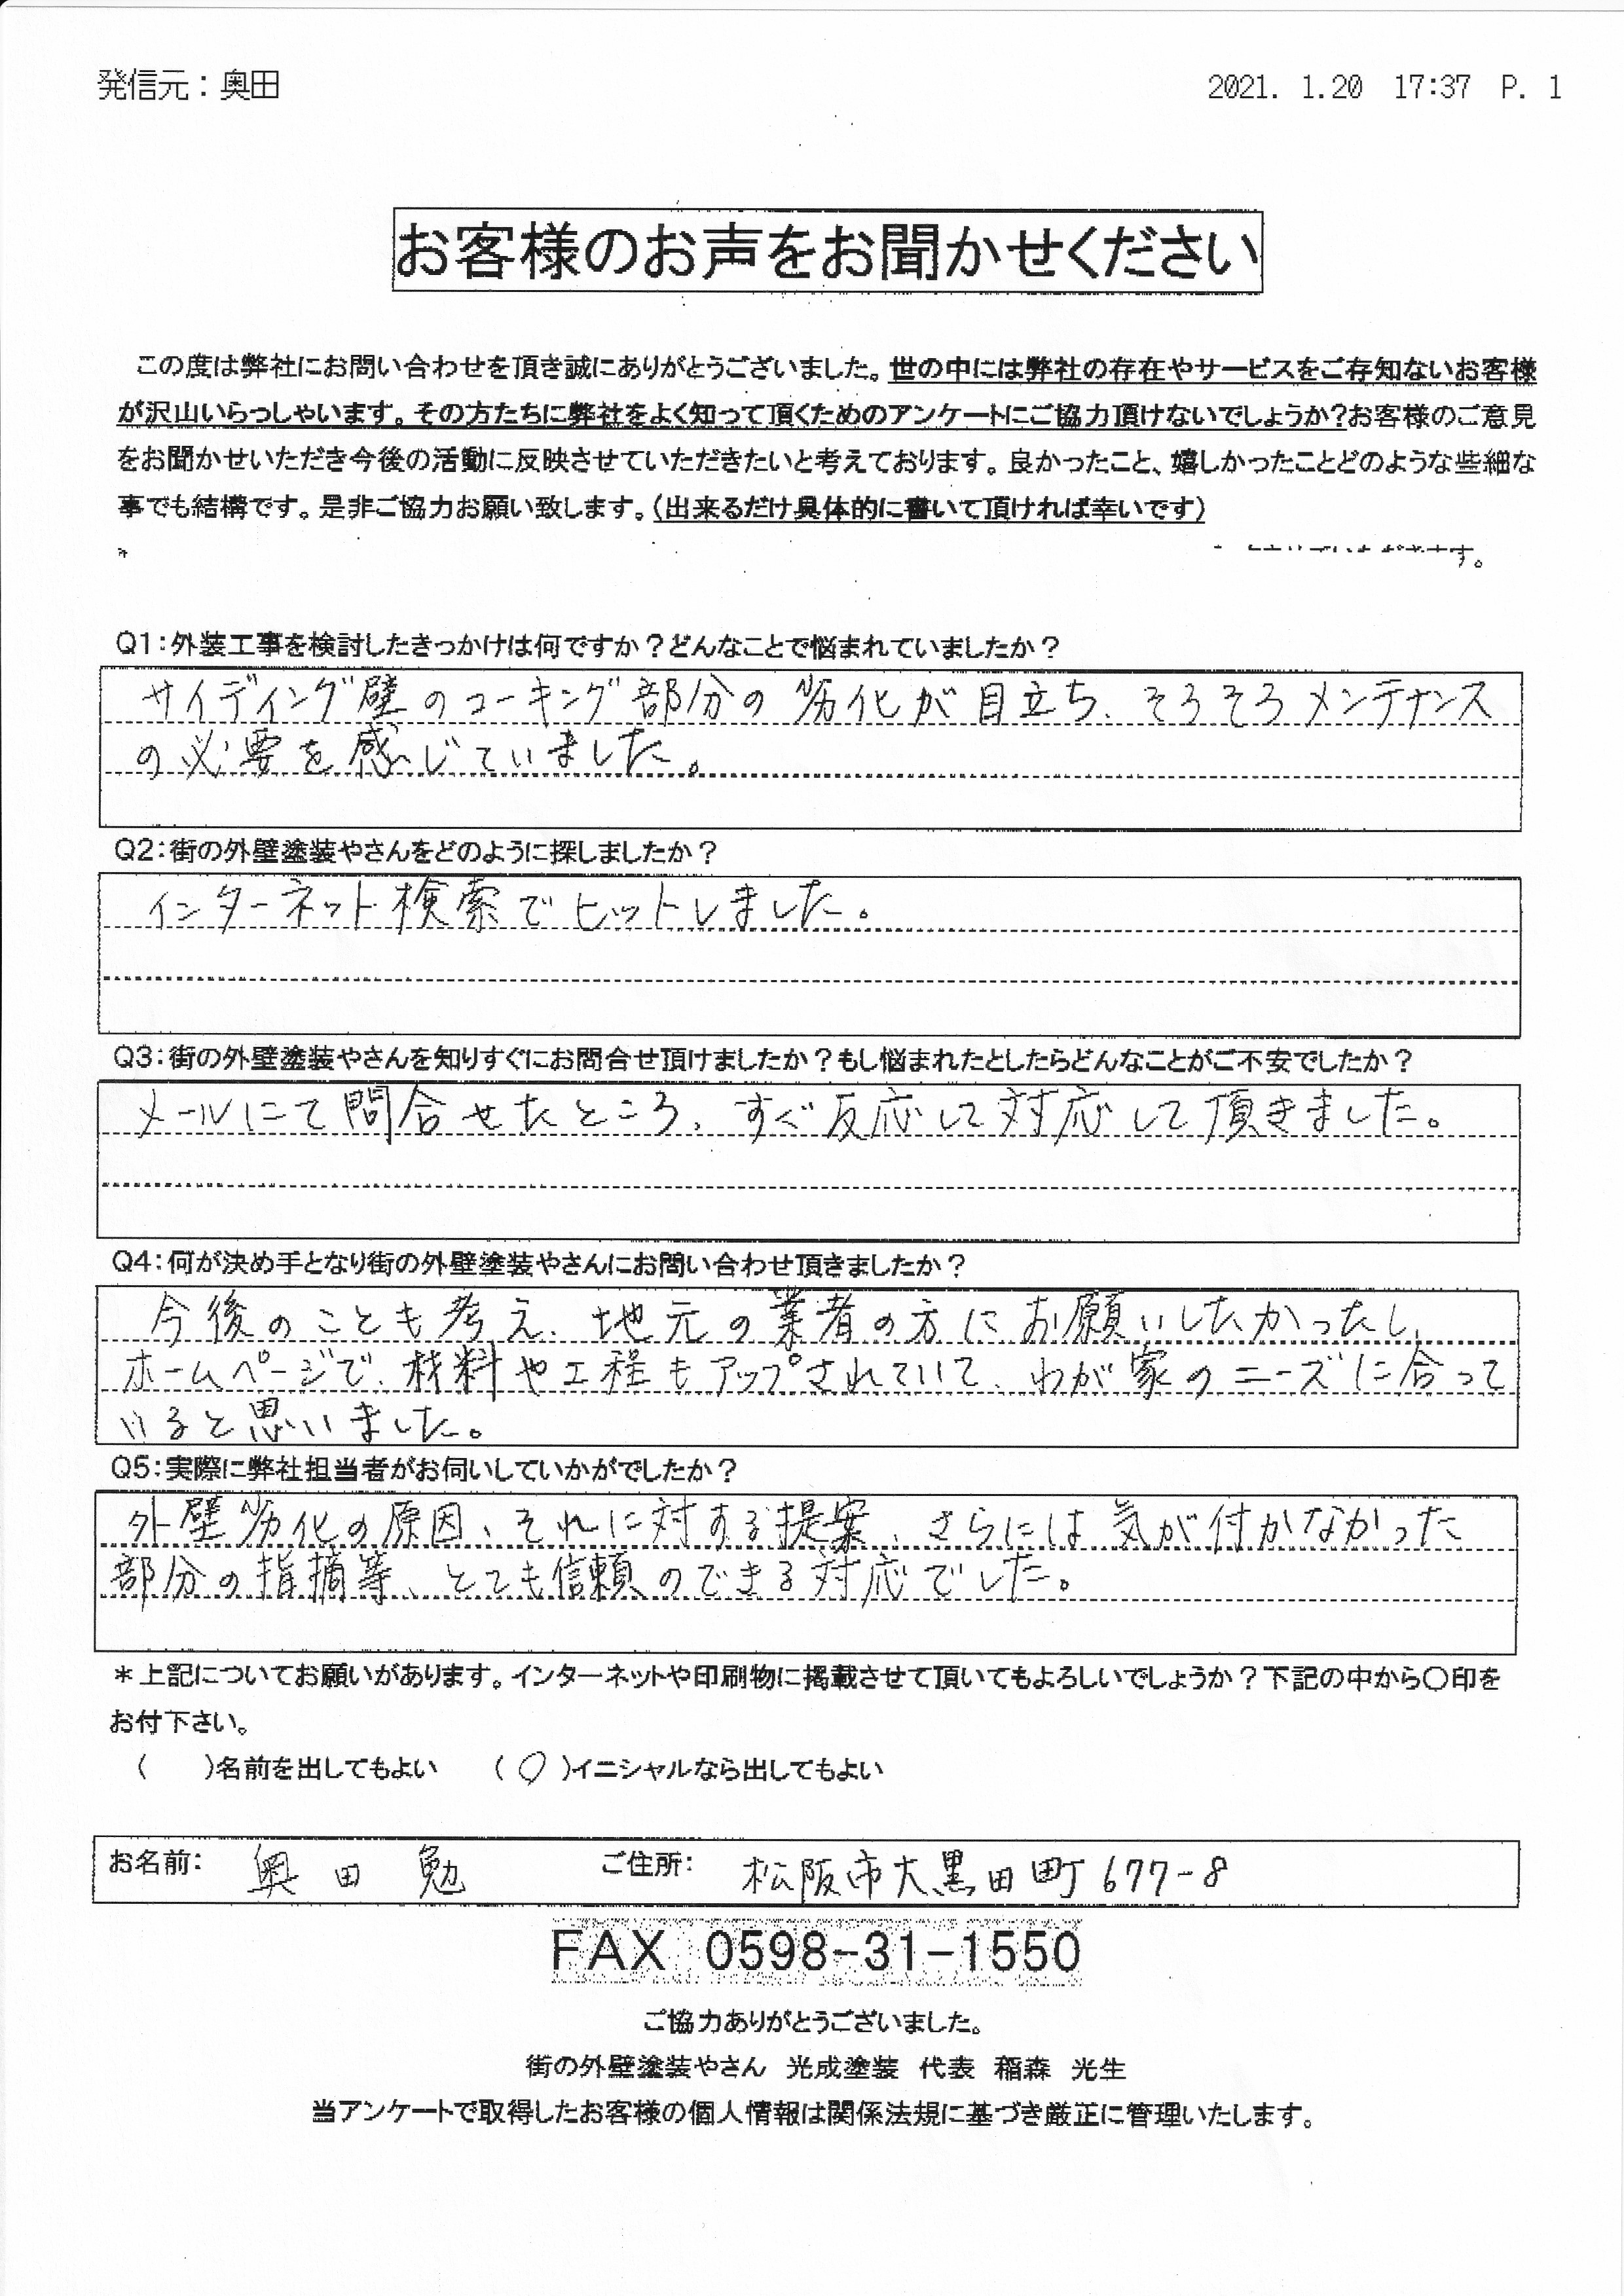 発信元：奥田 2021. 1.20 17:37 P. 1
お客様のお声をお聞かせください
この度は弊社にお問い合わせを頂き誠にありがとうございました。世の中には弊社の存在やサービスをご存知ないお客様
が沢山いらっしゃいます。その方たちに弊社をよく知って頂くためのアンケートにご協力頂けないでしょうか?お客様のご意見
をお聞かせいただき今後の活動に反映させていただきたいと考えております。良かったこと、嬉しかったことどのような些細な
事でも結構です。是非ご協力お願い致します。(出来るだけ具体的に書いて頂ければ幸いです)
す。
Q1:外装工事を検討したきっかけは何ですか?どんなことで悩まれていましたか?
サイディング壁のコーキング部分の劣化が目立ち、そろそろメンテナンス
の必要を感じていました。
Q2:街の外壁塗装やさんをどのように探しましたか?
インターネット検索でヒットしました。
Q3:街の外壁塗装やさんを知りすぐにお問合せ頂けましたか?もし悩まれたとしたらどんなことがご不安でしたか?
メールにて問合せたところ、すぐ反応して対応して頂きました。
Q4:何が決め手となり街の外壁塗装やさんにお問い合わせ頂きましたか?
今後のことも考え、地元の業者の方にお願いしたかったし、
ホームページで、材料や工程もアップされていて、わが家のニーズに合って
いると思いました。
Q5:実際に弊社担当者がお伺いしていかがでしたか?
外壁劣化の原因、それに対する提案、さらには気が付かなかった
部分の指摘等、とても信頼のできる対応でした。
＊上記についてお願いがあります。インターネットや印刷物に掲載させて頂いてもよろしいでしょうか?下記の中から〇印を
お付下さい。
( )名前を出してもよい (〇)イニシャルなら出してもよい
お名前: 奥田 勉 ご住所: 松阪市大黒田町677-8
FAX 0598-31-1550
ご協力ありがとうございました。
街の外壁塗装やさん 光成塗装 代表 稲森 光生
当アンケートで取得したお客様の個人情報は関係法規に基づき厳正に管理いたします。